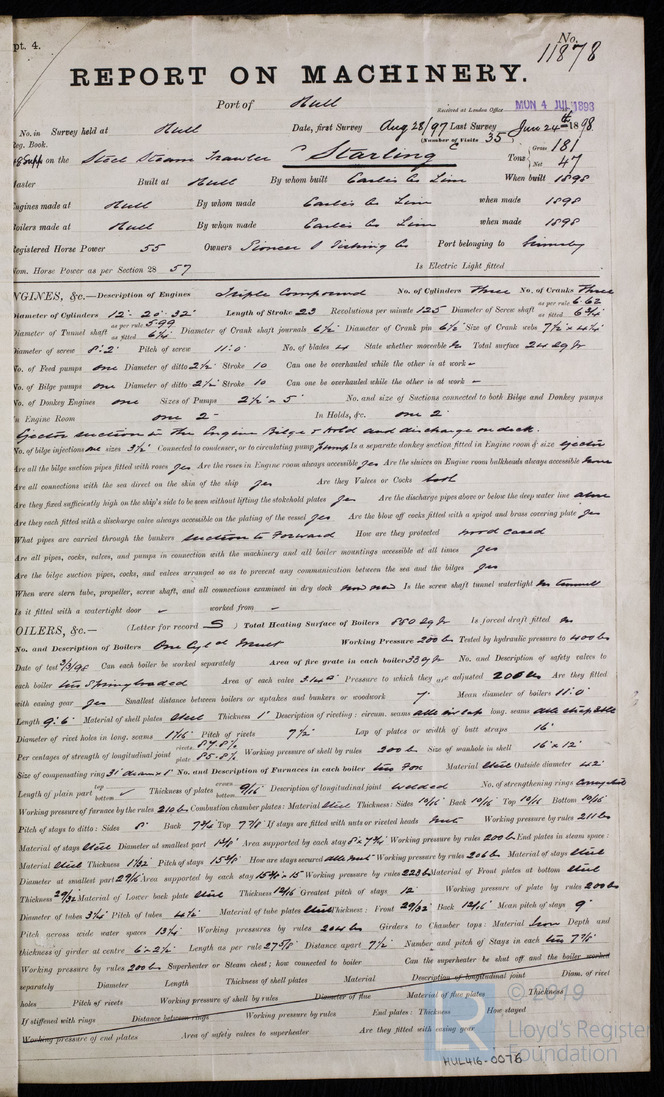 pt. 4.
No. 11878
REPORT ON MACHINERY.
Port of Hull
Received at London Office MON 4 JUL 1898
No. in Survey held at Hull Date, first Survey Aug 28/97 Last Survey June 24th 1898
Reg. Book. (Number of Visits 35)
on the Steel Steam Trawler "Starling" Tons Gross 181 Net 47
Master Built at Hull By whom built Earle's Co Lim When built 1898
Engines made at Hull By whom made Earle's Co Lim when made 1898
Boilers made at Hull By whom made Earle's Co Lim when made 1898
Registered Horse Power 55 Owners Pioneer S Fishing Co Port belonging to Grimsby
Nom. Horse Power as per Section 28 57 Is Electric Light fitted
ENGINES, &c.—Description of Engines Triple Compound No. of Cylinders Three No. of Cranks Three
Diameter of Cylinders 12" 20" 32" Length of Stroke 23 Revolutions per minute 125 Diameter of Screw shaft as per rule 6.62 as fitted 6 3/4"
Diameter of Tunnel shaft as per rule 5.99 as fitted 6 1/4" Diameter of Crank shaft journals 6 1/2" Diameter of Crank pin 6 1/2" Size of Crank webs
Diameter of screw 8'.2" Pitch of screw 11'.0" No. of blades 4 State whether moveable No Total surface 24 sq ft
No. of Feed pumps one Diameter of ditto 2 1/2" Stroke 10 Can one be overhauled while the other is at work –
No. of Bilge pumps one Diameter of ditto 2 1/2" Stroke 10 Can one be overhauled while the other is at work –
No. of Donkey Engines one Sizes of Pumps 2 1/2" × 5" No. and size of Suctions connected to both Bilge and Donkey pumps
In Engine Room one 2" In Holds, &c. one 2"
Ejector suction in the Engine Bilge & Hold and discharge on deck.
No. of bilge injections one sizes 3 1/2" Connected to condenser, or to circulating pump pump Is a separate donkey suction fitted in Engine room & size ejector
Are all the bilge suction pipes fitted with roses yes Are the roses in Engine room always accessible yes Are the sluices on Engine room bulkheads always accessible none
Are all connections with the sea direct on the skin of the ship yes Are they Valves or Cocks both
Are they fixed sufficiently high on the ship's side to be seen without lifting the stokehold plates yes Are the discharge pipes above or below the deep water line above
Are they each fitted with a discharge valve always accessible on the plating of the vessel yes Are the blow off cocks fitted with a spigot and brass covering plate yes
What pipes are carried through the bunkers suction to Forward How are they protected wood cased
Are all pipes, cocks, valves, and pumps in connection with the machinery and all boiler mountings accessible at all times yes
Are the bilge suction pipes, cocks, and valves arranged so as to prevent any communication between the sea and the bilges yes
When were stern tube, propeller, screw shaft, and all connections examined in dry dock now new Is the screw shaft tunnel watertight no tunnel
Is it fitted with a watertight door – worked from –
BOILERS, &c.— (Letter for record S) Total Heating Surface of Boilers 880 sq ft Is forced draft fitted no
No. and Description of Boilers One Cyl Mult Working Pressure 200 lbs Tested by hydraulic pressure to 400 lbs
Date of test Can each boiler be worked separately Area of fire grate in each boiler 33 sq ft No. and Description of safety valves to
each boiler two Spring loaded Area of each valve Pressure to which they are adjusted 200 lbs Are they fitted
with easing gear yes Smallest distance between boilers or uptakes and bunkers or woodwork 7" Mean diameter of boilers 11'.0"
Length 9'.6" Material of shell plates Steel Thickness 1" Description of riveting: circum. seams long. seams
Diameter of rivet holes in long. seams 1 1/16" Pitch of rivets 7 1/2" Lap of plates or width of butt straps 16"
Per centages of strength of longitudinal joint rivets 87.8% plate 85.8% Working pressure of shell by rules 200 lbs Size of manhole in shell 16" × 12"
Size of compensating ring No. and Description of Furnaces in each boiler two Fox Material Steel Outside diameter 42"
Length of plain part top bottom Thickness of plates crown bottom 9/16" Description of longitudinal joint welded No. of strengthening rings Corrugated
Working pressure of furnace by the rules 210 lbs Combustion chamber plates: Material Steel Thickness: Sides 10/16" Back 10/16" Top 10/16" Bottom 10/16"
Pitch of stays to ditto: Sides 8" Back 7 3/4" Top 7 7/8" If stays are fitted with nuts or riveted heads nuts Working pressure by rules 211 lbs
Material of stays Steel Diameter at smallest part Area supported by each stay 8" × 7 3/4" Working pressure by rules 200 lbs End plates in steam space:
Material Steel Thickness 1 1/32" Pitch of stays How are stays secured Working pressure by rules 206 lbs Material of stays Steel
Diameter at smallest part 2 9/16" Area supported by each stay Working pressure by rules 223 lbs Material of Front plates at bottom Steel
Thickness 29/32 Material of Lower back plate Steel Thickness 12/16 Greatest pitch of stays 12" Working pressure of plate by rules 200 lbs
Diameter of tubes 3 1/4" Pitch of tubes 4 1/2" Material of tube plates Steel Thickness: Front 29/32" Back 12/16" Mean pitch of stays 9"
Pitch across wide water spaces 13 1/4" Working pressures by rules 204 lbs Girders to Chamber tops: Material Iron Depth and
thickness of girder at centre 6" × 2 1/2" Length as per rule 27 5/8" Distance apart 7 1/2" Number and pitch of Stays in each two 7 7/8"
Working pressure by rules 200 lbs Superheater or Steam chest; how connected to boiler Can the superheater be shut off and the boiler worked
separately Diameter Length Thickness of shell plates Material Description of longitudinal joint Diam. of rivet
holes Pitch of rivets Working pressure of shell by rules Diameter of flue Material of flue plates Thickness
If stiffened with rings Distance between rings Working pressure by rules End plates: Thickness How stayed
Working pressure of end plates Area of safety valves to superheater Are they fitted with easing gear
© 2019
Lloyd's Register
Foundation
HUL416-0076